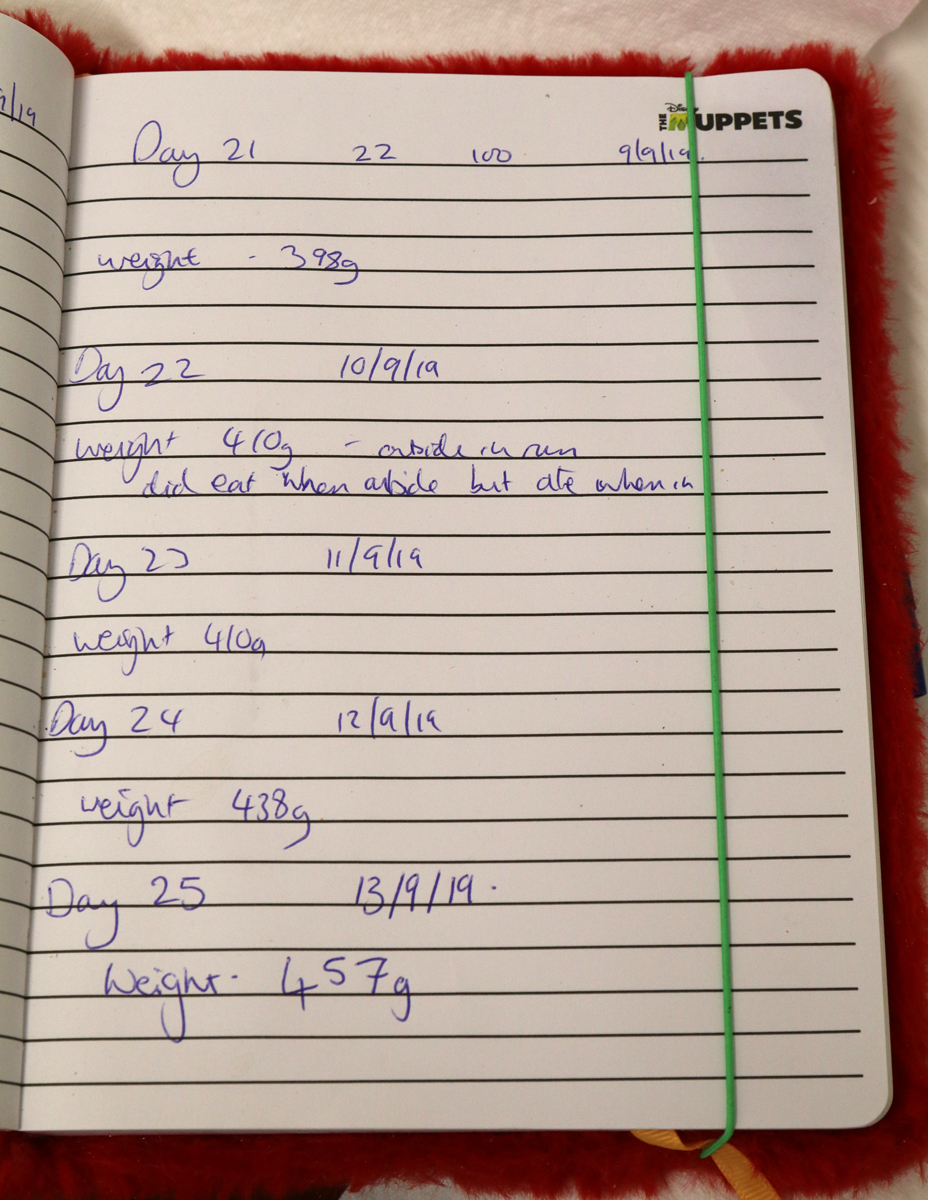 9/19
Disney
THE MUPPETS
Day 21 22 100 9/9/19.
weight - 398g
Day 22 10/9/19
weight 410g - outside in run
did eat when outside but ate when in
Day 23 11/9/19
weight 410g
Day 24 12/9/19
weight 438g
Day 25 13/9/19.
Weight- 457g